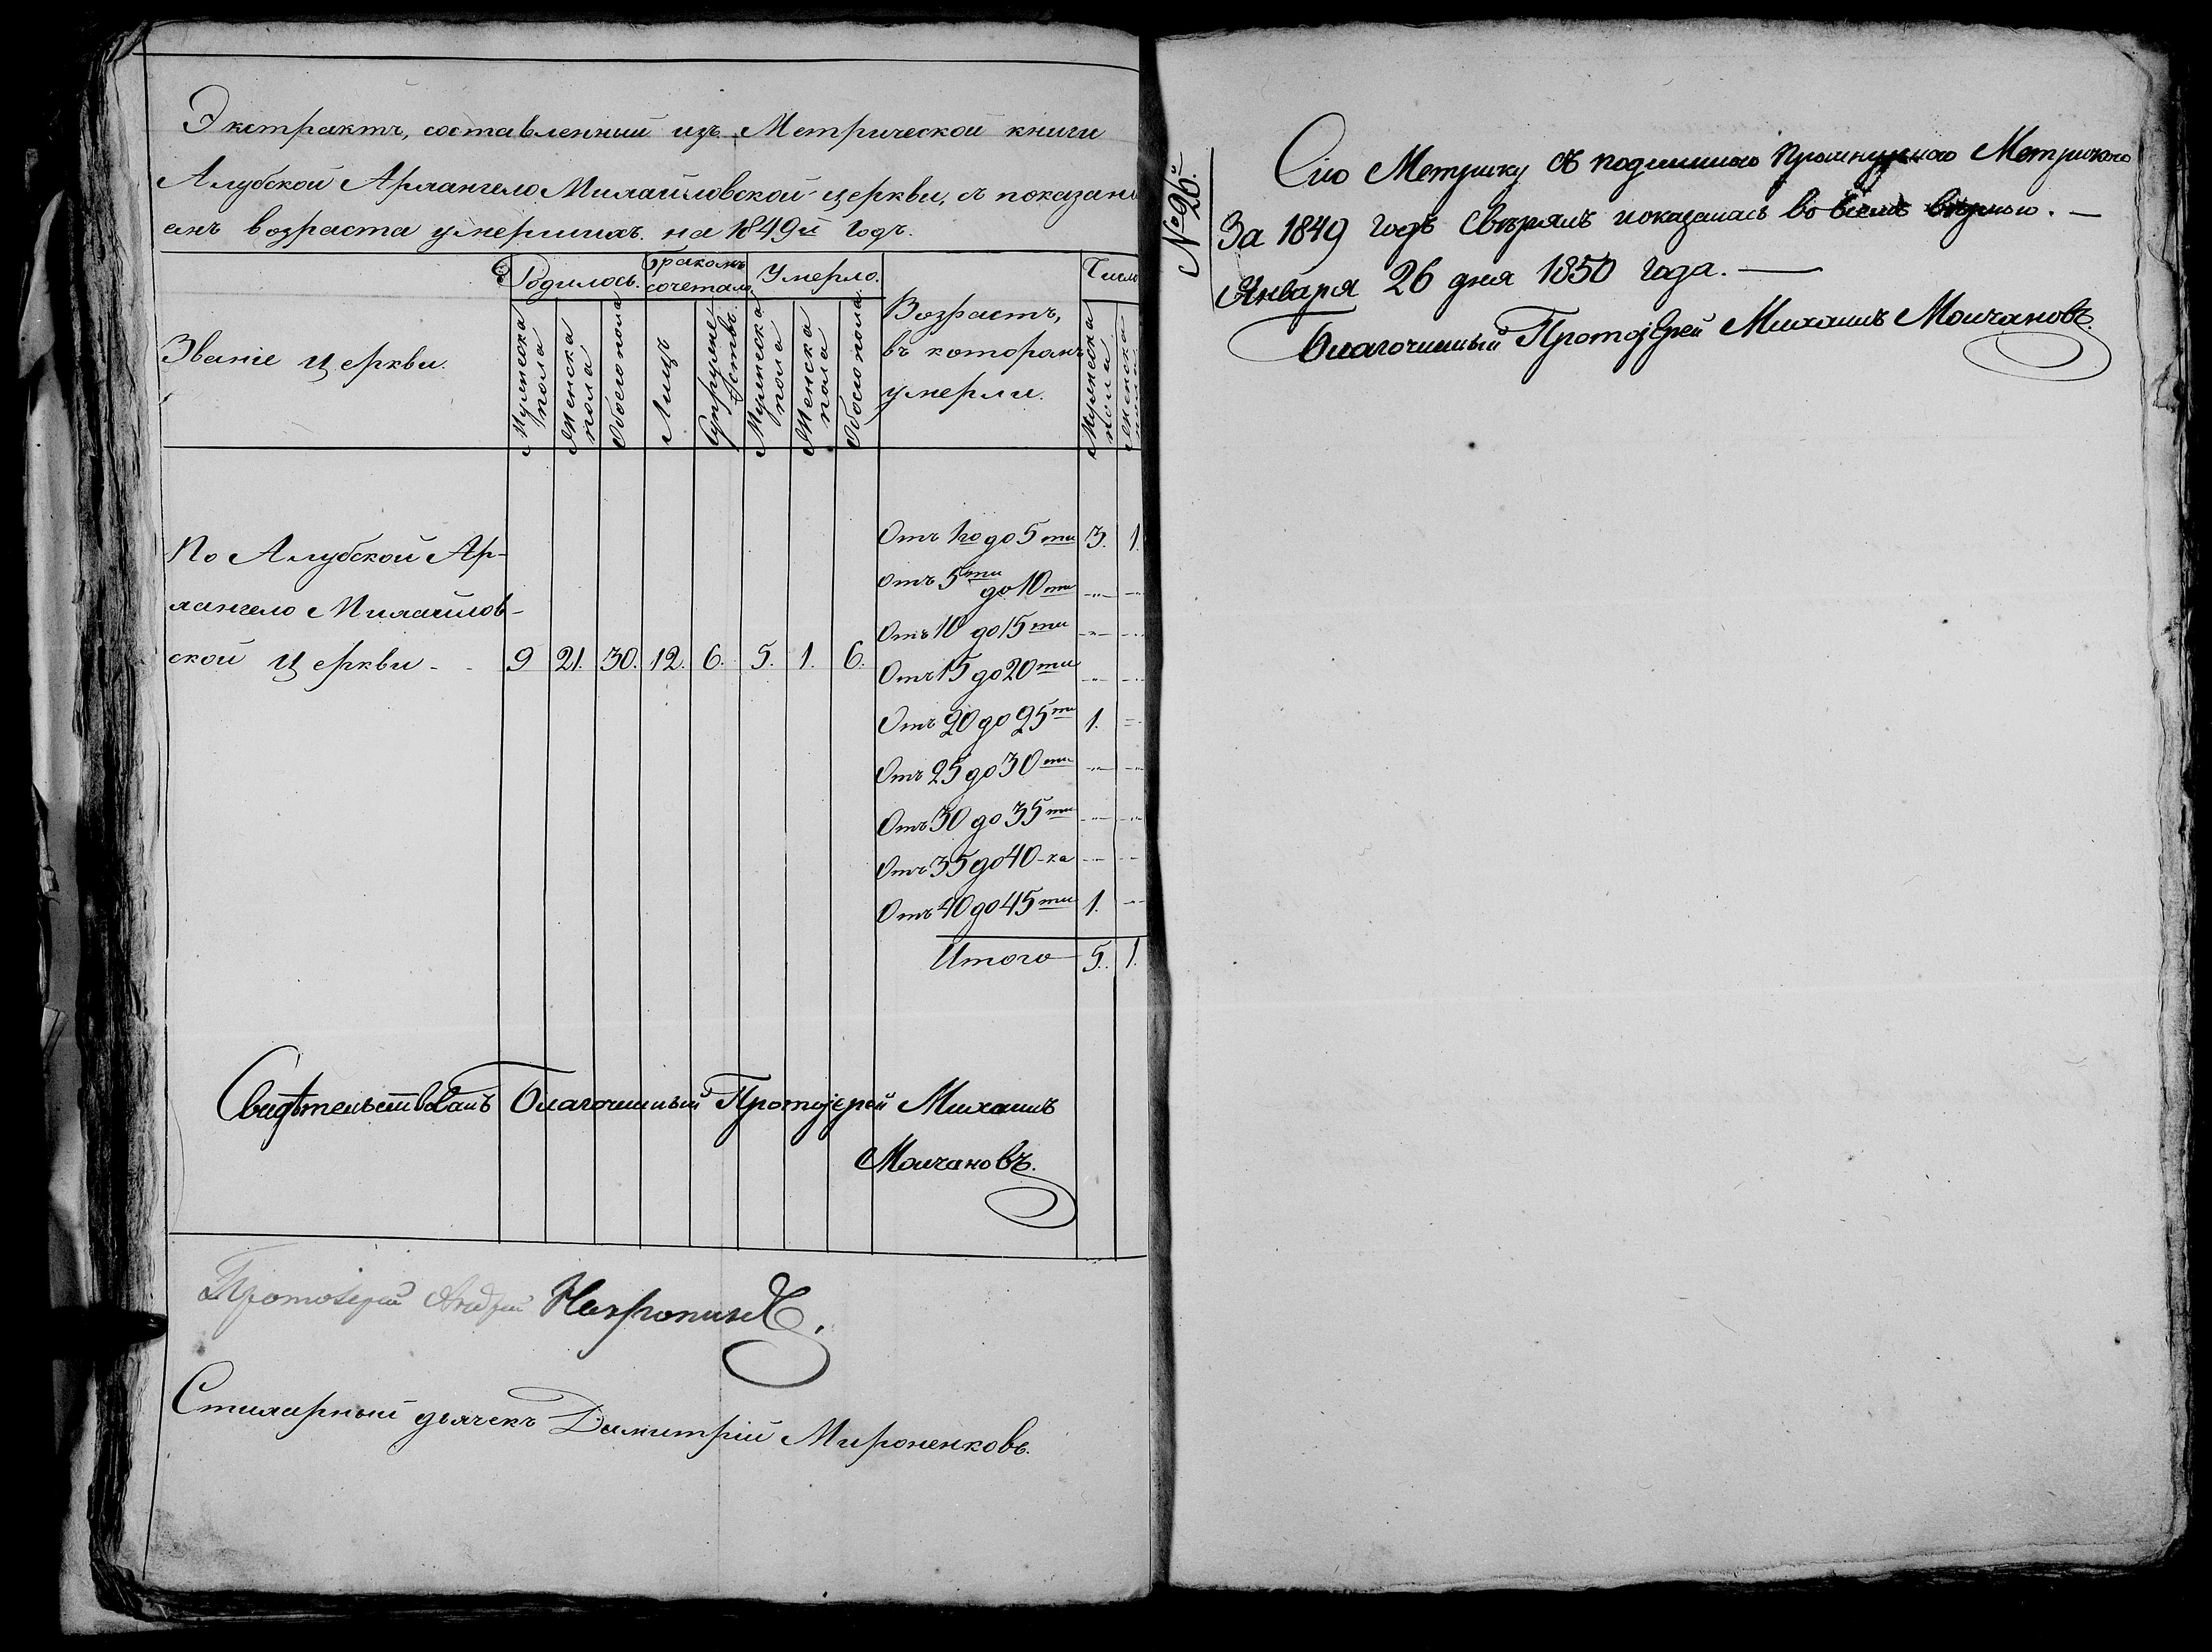 Экстрактъ, составленный изъ Метрической книги
Алубской Архангело Михайловской церкви, съ показані
емъ возраста умершихъ. на 1849й Годъ.
Званіе Церкви.
Родилось.
Бракомъ сочетало
Умерло.
Возрастъ,
въ которомъ
умерли.
Число
Мужеска пола
Женска пола
Обоего пола
Лицъ
Супружествъ
Мужеска пола
Женска пола
Обоего пола
Мужеска пола
Женска пола
По Алубской Ар-
хангело Михайлов-
ской Церкви - - 9 21. 30. 12. 6. 5. 1. 6.
Отъ 1го до 5ти 3. 1.
отъ 5ти до 10ти -"- -"-
Отъ 10 до 15ти -"- -"-
Отъ 15 до 20ти -"- -"-
Отъ 20 до 25ти 1. -"-
Отъ 25 до 30ти -"- -"-
Отъ 30 до 35ти -"- -"-
Отъ 35 до 40-ка -"- -"-
Отъ 40 до 45ти 1. -"-
Итого 5. 1.
Свидѣтельствовалъ Благочинный Протоjерей Михаилъ
Молчановъ.
Протоіерей Андрей
Стихарный дьячекъ Димитрій Мироненковъ.
№ 26.
Сію Метрику съ подлинною Метрикою
За 1849 годъ Свѣрялъ и оказалась во всемъ вѣрною. —
Января 26 дня 1850 года. —
Благочинный ПротоjЕрей Михаилъ Молчановъ.